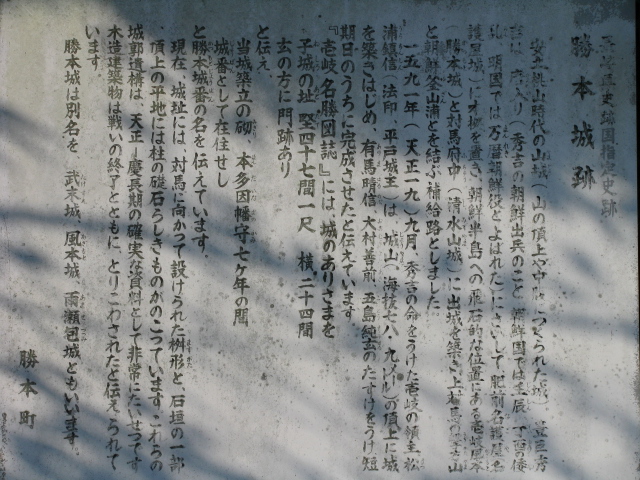 壱岐島史跡国指定史跡
勝本城跡
安土桃山時代の山城（山の頂上や中腹につくられた城）豊臣秀
吉は、唐入り（秀吉の朝鮮出兵のこと、朝鮮国では壬辰・丁酉の倭
乱、明国では万暦朝鮮役とよばれた）にさいして肥前名護屋（名
護屋城）に本拠を置き、朝鮮半島への飛石的な位置にある壱岐風本
（勝本城）と対馬府中（清水山城）に出城を築き上対馬の
と朝鮮釜山浦とを結ぶ補給路としました。
一五九一（天正一九）九月、秀吉の命をうけた壱岐の領主松
浦鎮信（法印、平戸城主）は、城山（海抜七八・九メートル）の頂上に城
を築きはじめ、有馬晴信、大村喜前、五島純玄のたすけをうけ短
期日のうちに完成させたと伝えています。
『壱岐名勝図誌』には、城のありさまを
子城の址 竪四十七間一尺 横二十四間
玄の方に門跡あり
と伝え
当城築立の砌、本多因幡守七ケ年の間
城番として在住せし
と勝本城番の名を伝えています。
現在、城址には、対馬に向かって設けられた桝形と石垣の一部
、頂上の平地には柱の礎石らしきものがのこっています。これらの
城郭遺構は、天正～慶長期の確実な資料として非常にたいせつです。
木造建築物は戦いの終了とともに、とりこわされたと伝えられて
います。
勝本城は別名を、武末城、風本城、雨瀬包城ともいいます。
勝本町